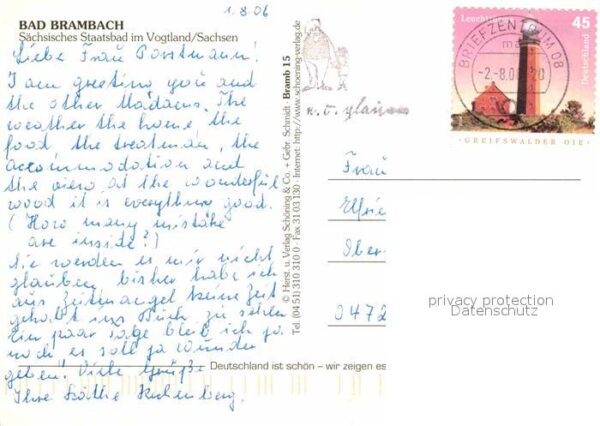 1.8.06
BAD BRAMBACH
Sächsisches Staatsbad im Vogtland/Sachsen
Liebe Frau Porstmann!
I am greeting you and
the other Madams. The
weather the home, the
food, the treatman, the
accommodation and
the view at the wonderful
wood it is everything good.
(How many mistake
are inside?)
Sie werden es mir nicht
glauben, bisher habe ich
aus Zeitmangel keine Zeit
gehabt ins Buch zu sehen.
Ein paar Tage bleib ich ja
noch es soll ja Wunder
geben! Viele Grüße
Ihre Käthe
© Herst. u. Verlag Schöning & Co. + Gebr. Schmidt
Bramb 15
Tel. (04 51) 310 310 0 · Fax 31 03 130 · Internet: http://www.schoening-verlag.de
Deutschland ist schön – wir zeigen es
Leuchttürme
45
Deutschland
GREIFSWALDER OIE
BRIEFZENTRUM 08
ma
-2.-8.06 20
Frau
Elfrie
Ober
0472
privacy protection
Datenschutz